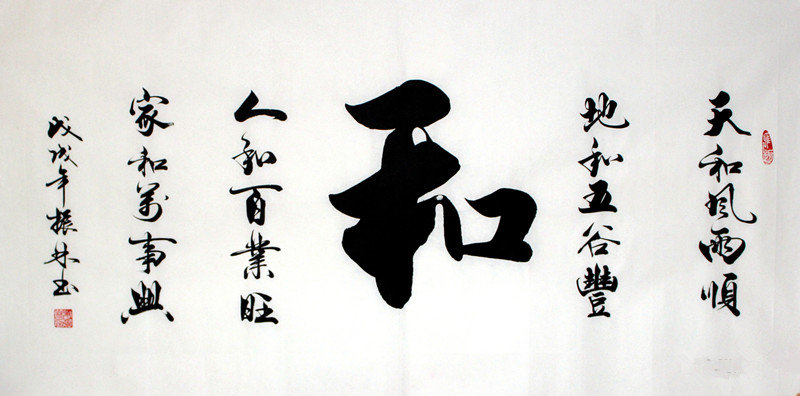 天和風雨順
地和五谷豐
和
人和百業旺
家和萬事興
戊戌年振林书